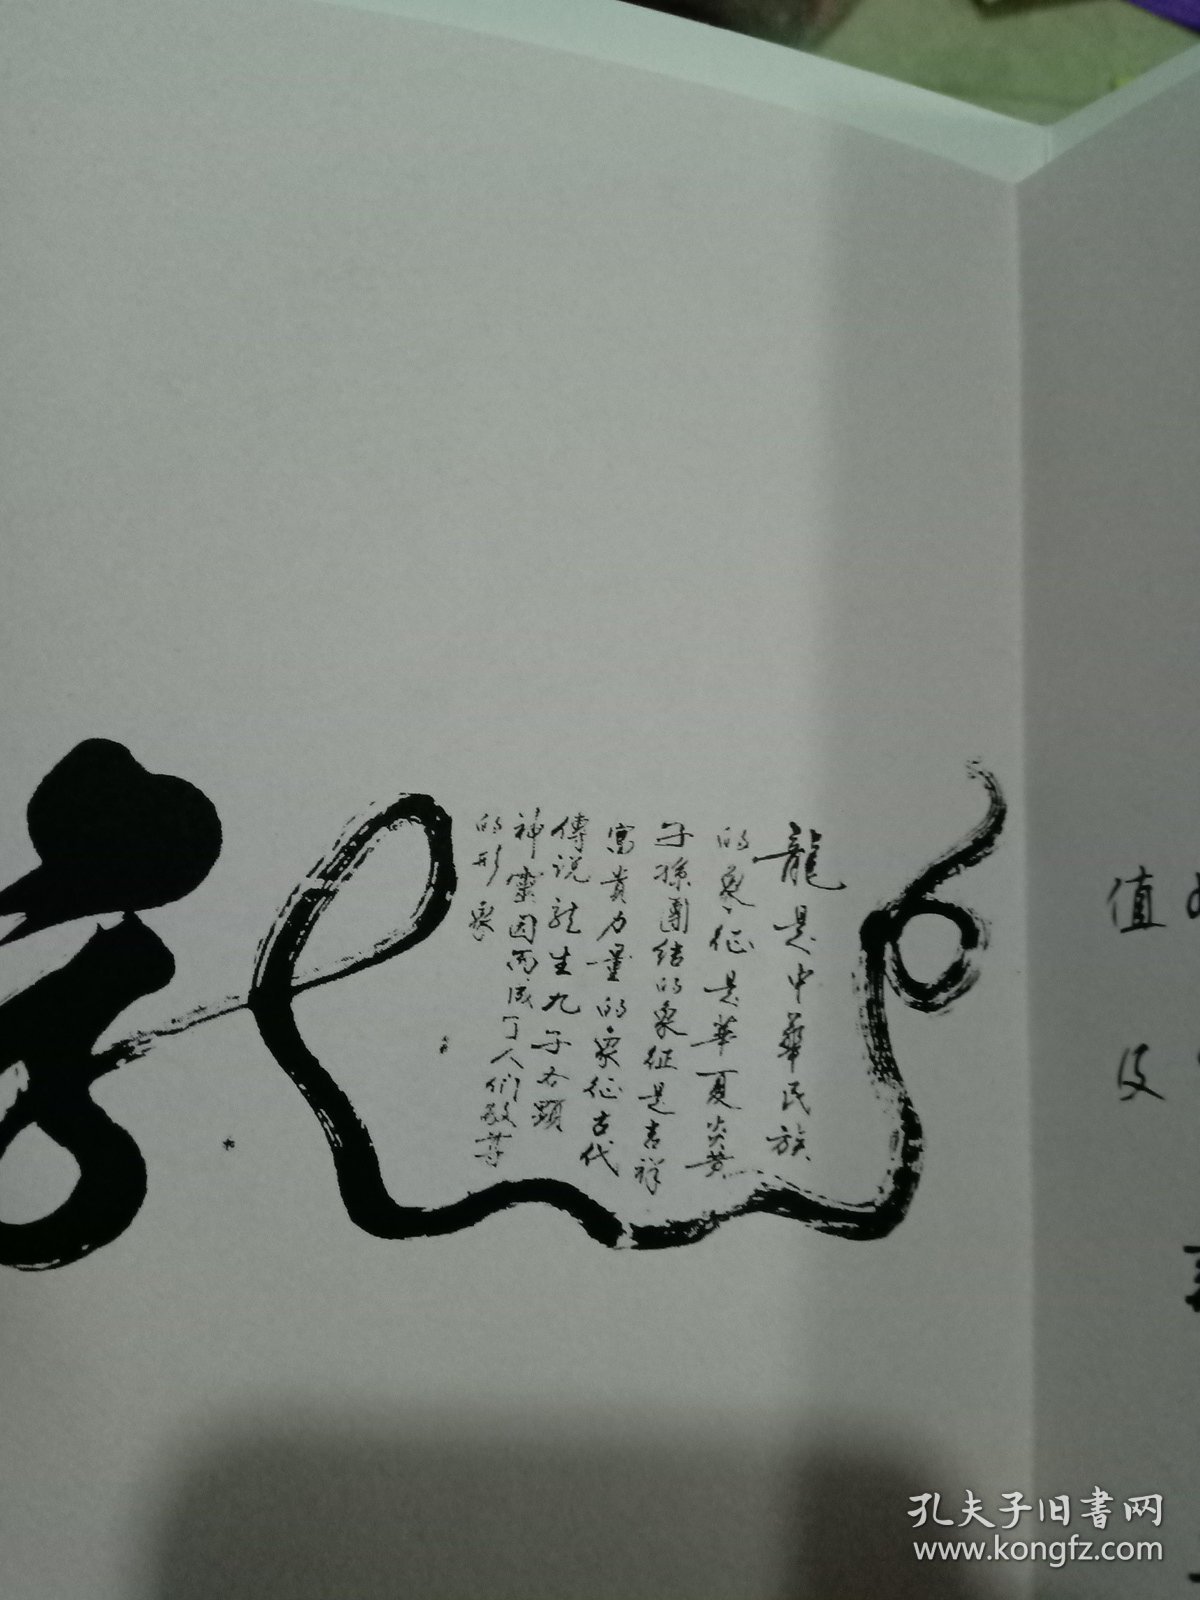 龍是中華民族
的象征是華夏炎黄
子孫團結的象征是吉祥
富貴力量的象征古代
傳说龙生九子各顯
神靈因而成了人们敬尊
的形象
值
及
孔夫子旧書网
www.kongfz.com